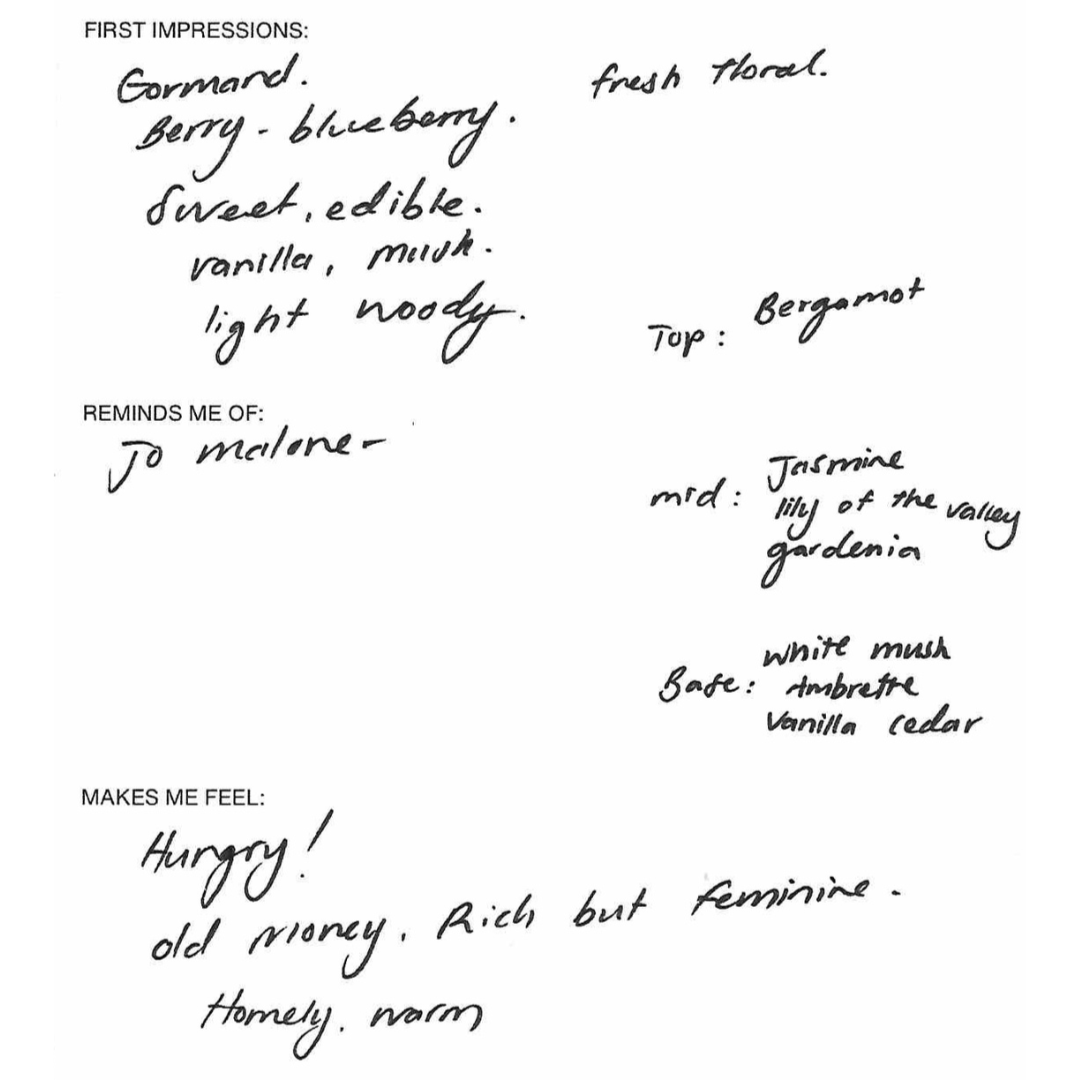 FIRST IMPRESSIONS:
Gormand.
Berry - blueberry.
Sweet, edible.
vanilla, musk.
light woody.
fresh floral.
Top: Bergamot
REMINDS ME OF:
Jo malone -
mid: Jasmine
lily of the valley
gardenia
Base: white musk
Ambrette
Vanilla cedar
MAKES ME FEEL:
Hungry!
old money. Rich but feminine.
Homely. warm